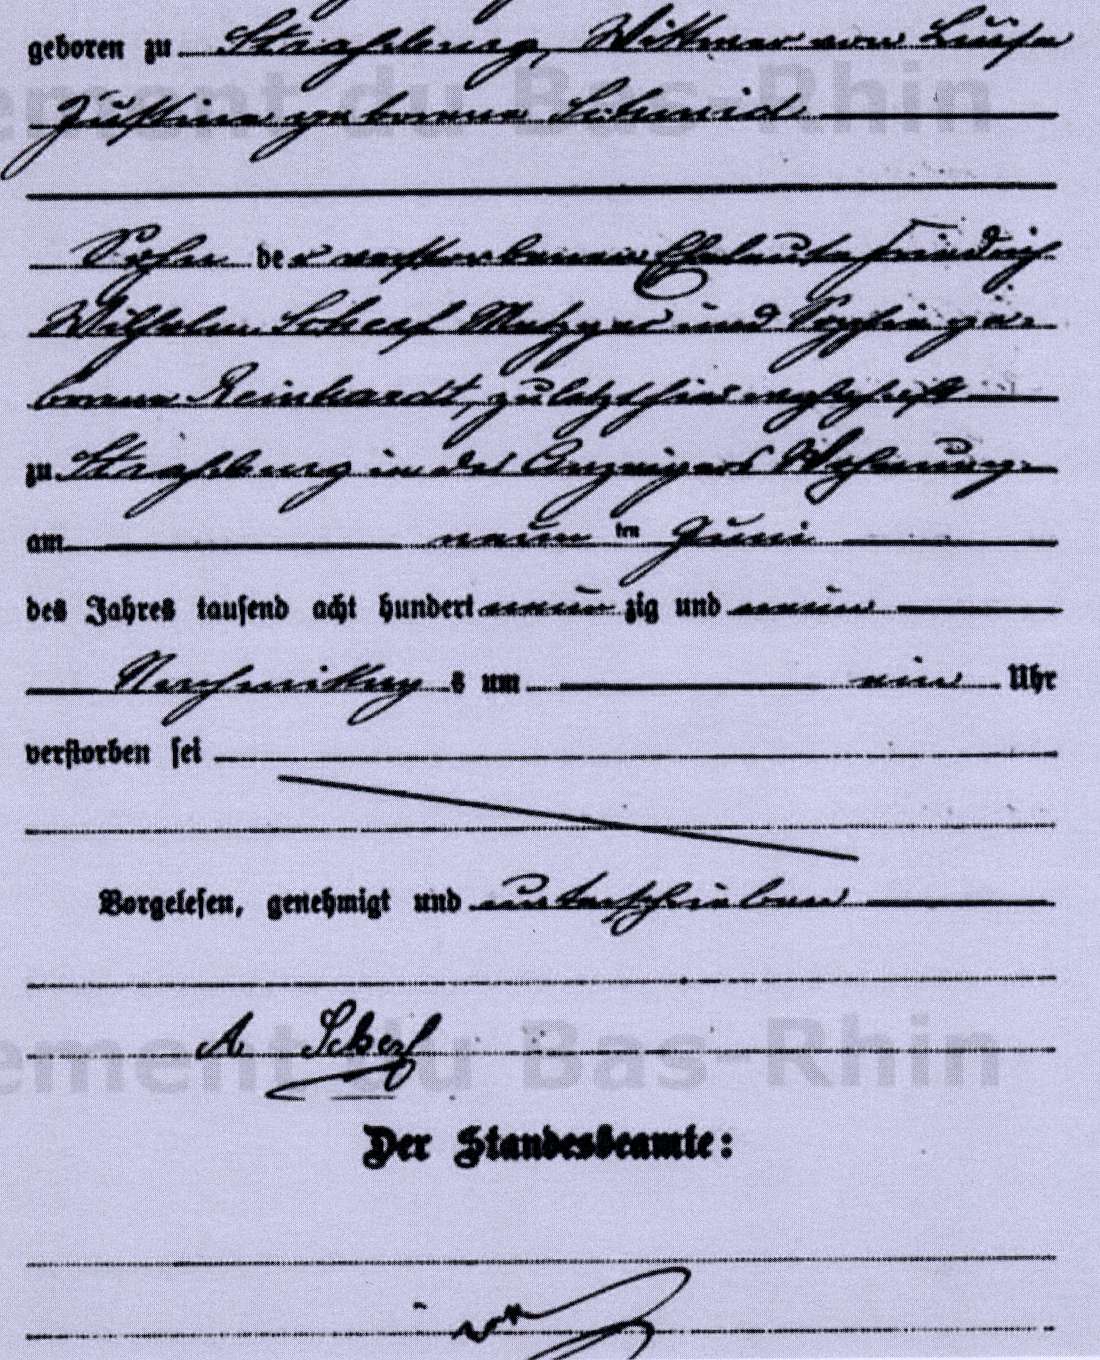 geboren zu Straßburg, Wittwer von Luise
Justine geborene Schmid
Sohn der verstorbenen Eheleute Friedrich
Wilhelm Scherf Metzger und Sophie ge-
borene Reinhardt, zuletzt hier
zu Straßburg in des Anzeigers Wohnung
am neun ten Juni
des Jahres tausend acht hundert neun zig und neun
Nachmittag s um ein Uhr
verstorben sei
Vorgelesen, genehmigt und unterschrieben
A Scherf
Der Standesbeamte:
ement du Bas-Rhin
ement du Bas-Rhin